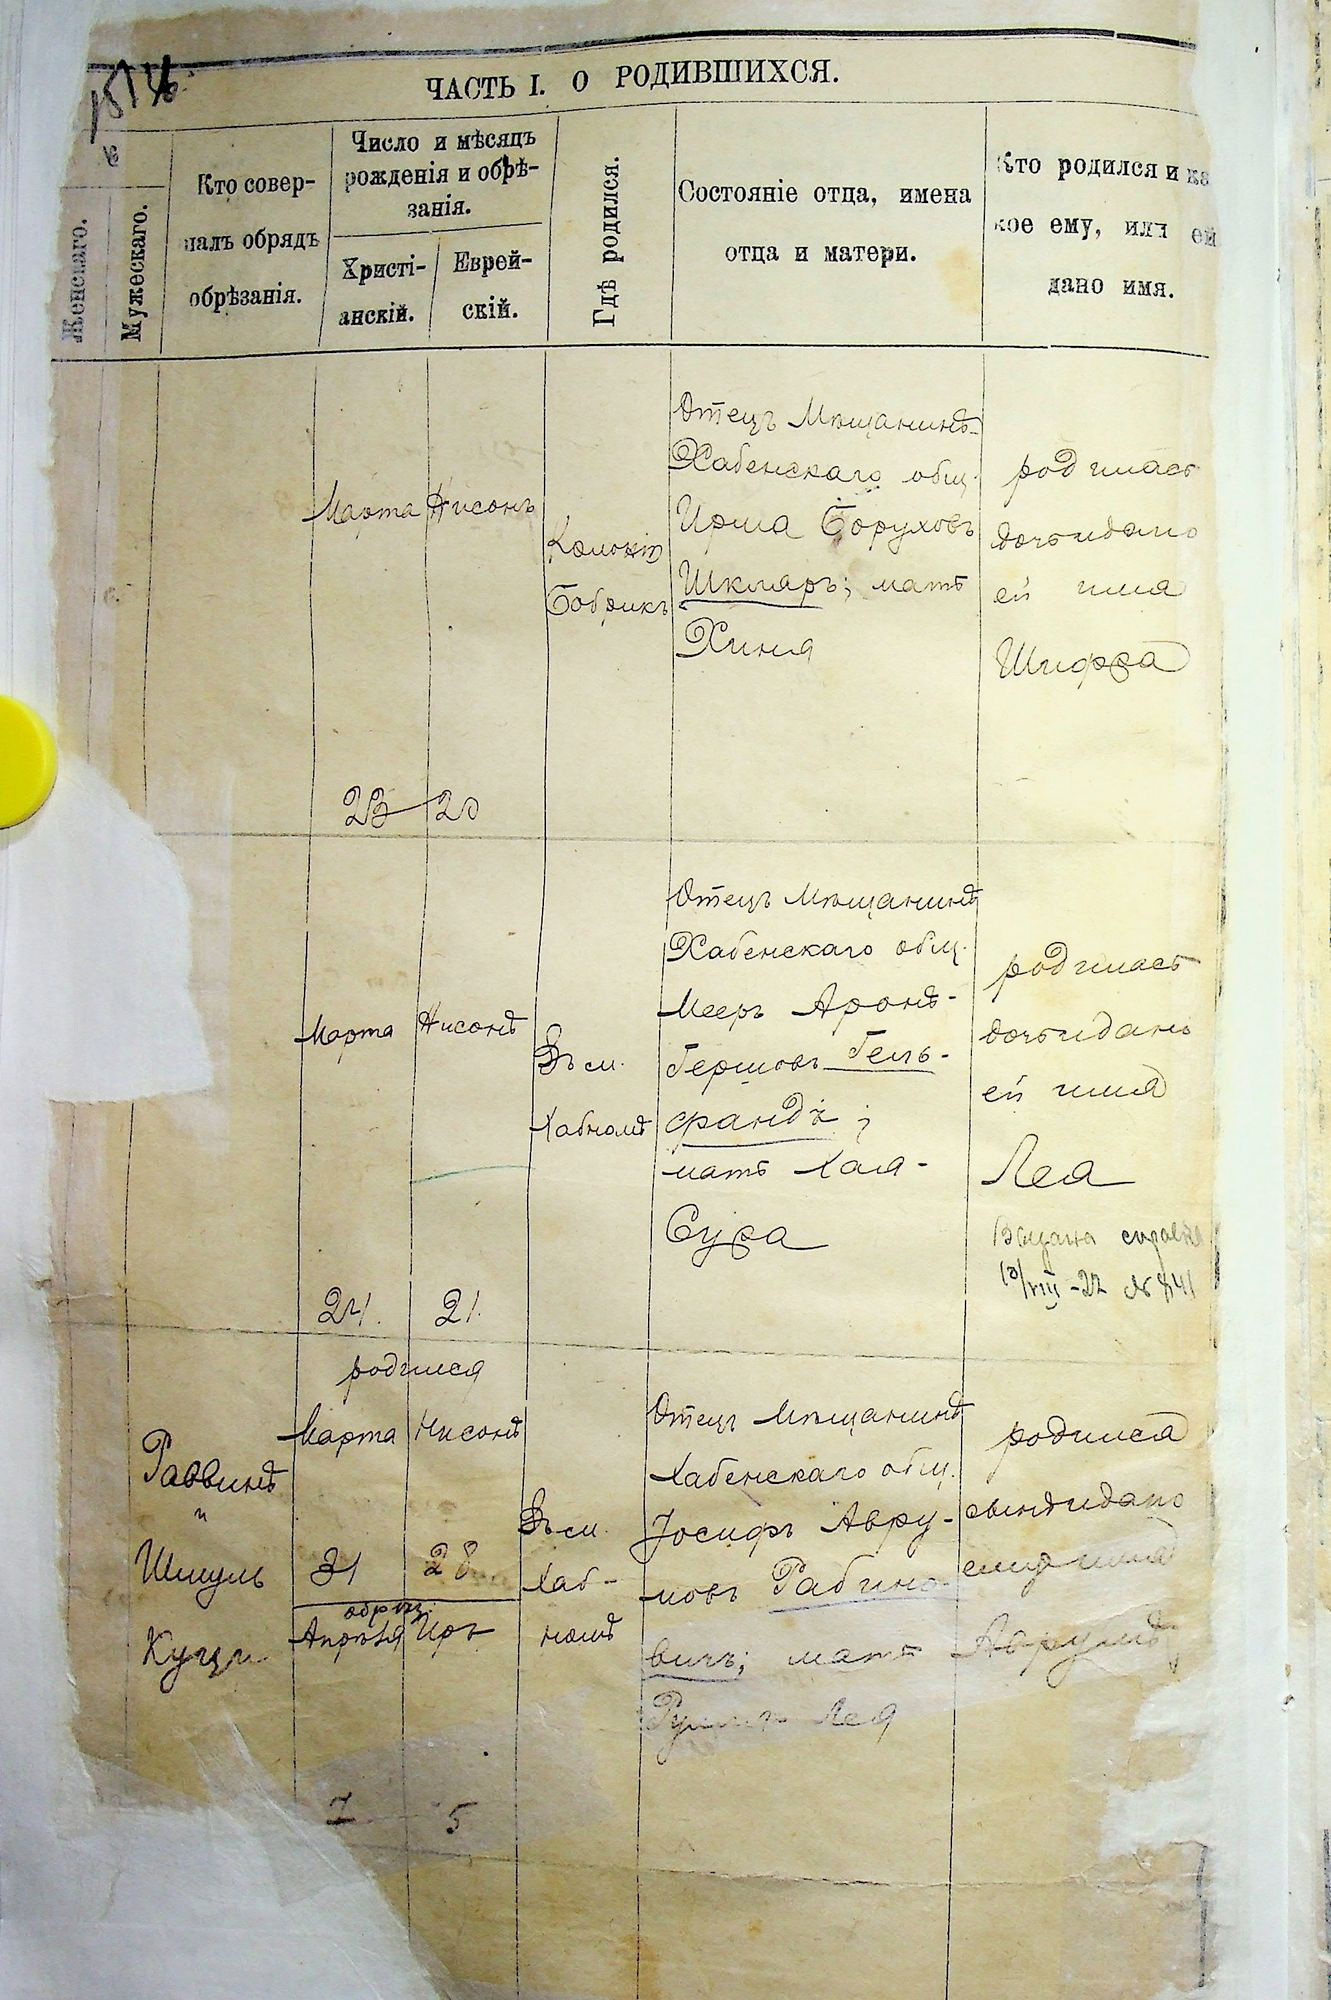 ЧАСТЬ I. О РОДИВШИХСЯ.
Женскаго.
Мужескаго.
Кто совер-
шалъ обрядъ
обрѣзанія.
Число и мѣсяцъ
рожденія и обрѣ-
занія.
Христі-
анскій.
Еврей-
скій.
Гдѣ родился.
Состояніе отца, имена
отца и матери.
Кто родился и ка
кое ему, или ей
дано имя.
Марта
23
Нисонъ
20
Колонія
Бобрикъ
Отецъ Мѣщанинъ
Хабенскаго общ.
Ирша Боруховъ
Шкляръ; мать
Хиня
родилась
дочь и дано
ей имя
Шифра
Марта
24.
Нисонъ
21.
Въ м.
Хабномъ
Отецъ Мѣщанинъ
Хабенскаго общ.
Мееръ Аронъ-
Гершовъ Гель-
фандъ;
мать Хая-
Сура
родилась
дочь и дано
ей имя
Лея
Выдана справка
/VIII-22 №
Раввинъ
и
Шмуль
родился
Марта
31
Нисонъ
28
обрѣз.
Апрѣля
7
Иръ
5
Въ м.
Хаб-
номъ
Отецъ Мѣщанинъ
Хабенскаго общ.
Іосифъ Авру-
мовъ Рабино-
вичъ; мать
Лея
родился
сынъ и дано
ему имя
Аврумъ